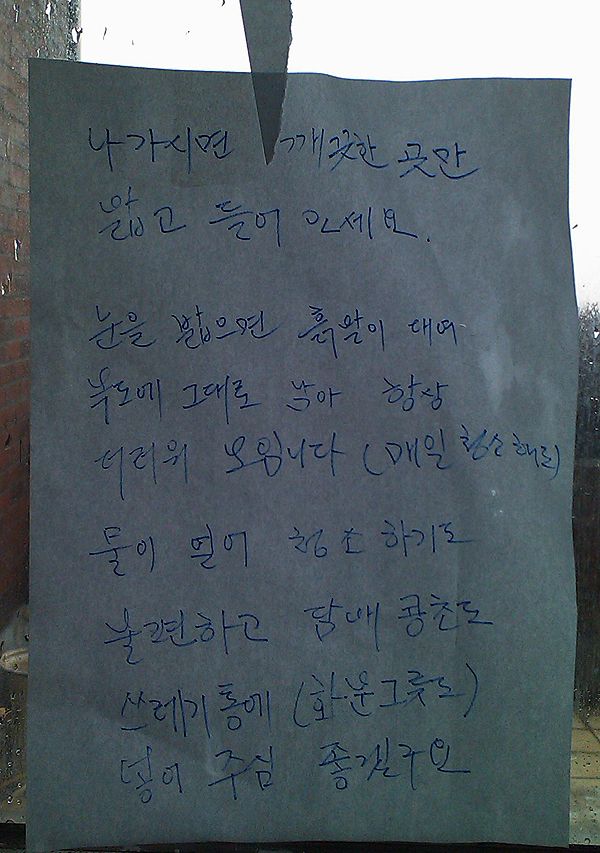 나가시면 깨끗한 곳만
밟고 들어 오세요.
눈을 밟으면 흙발이 대여
복도에 그대로 남아 항상
더러워 보입니다 (매일 청소해도)
물이 얼어 청소하기도
불편하고 담배 꽁초도
쓰레기통에 (화분그릇도)
넣어 주심 좋겠구요